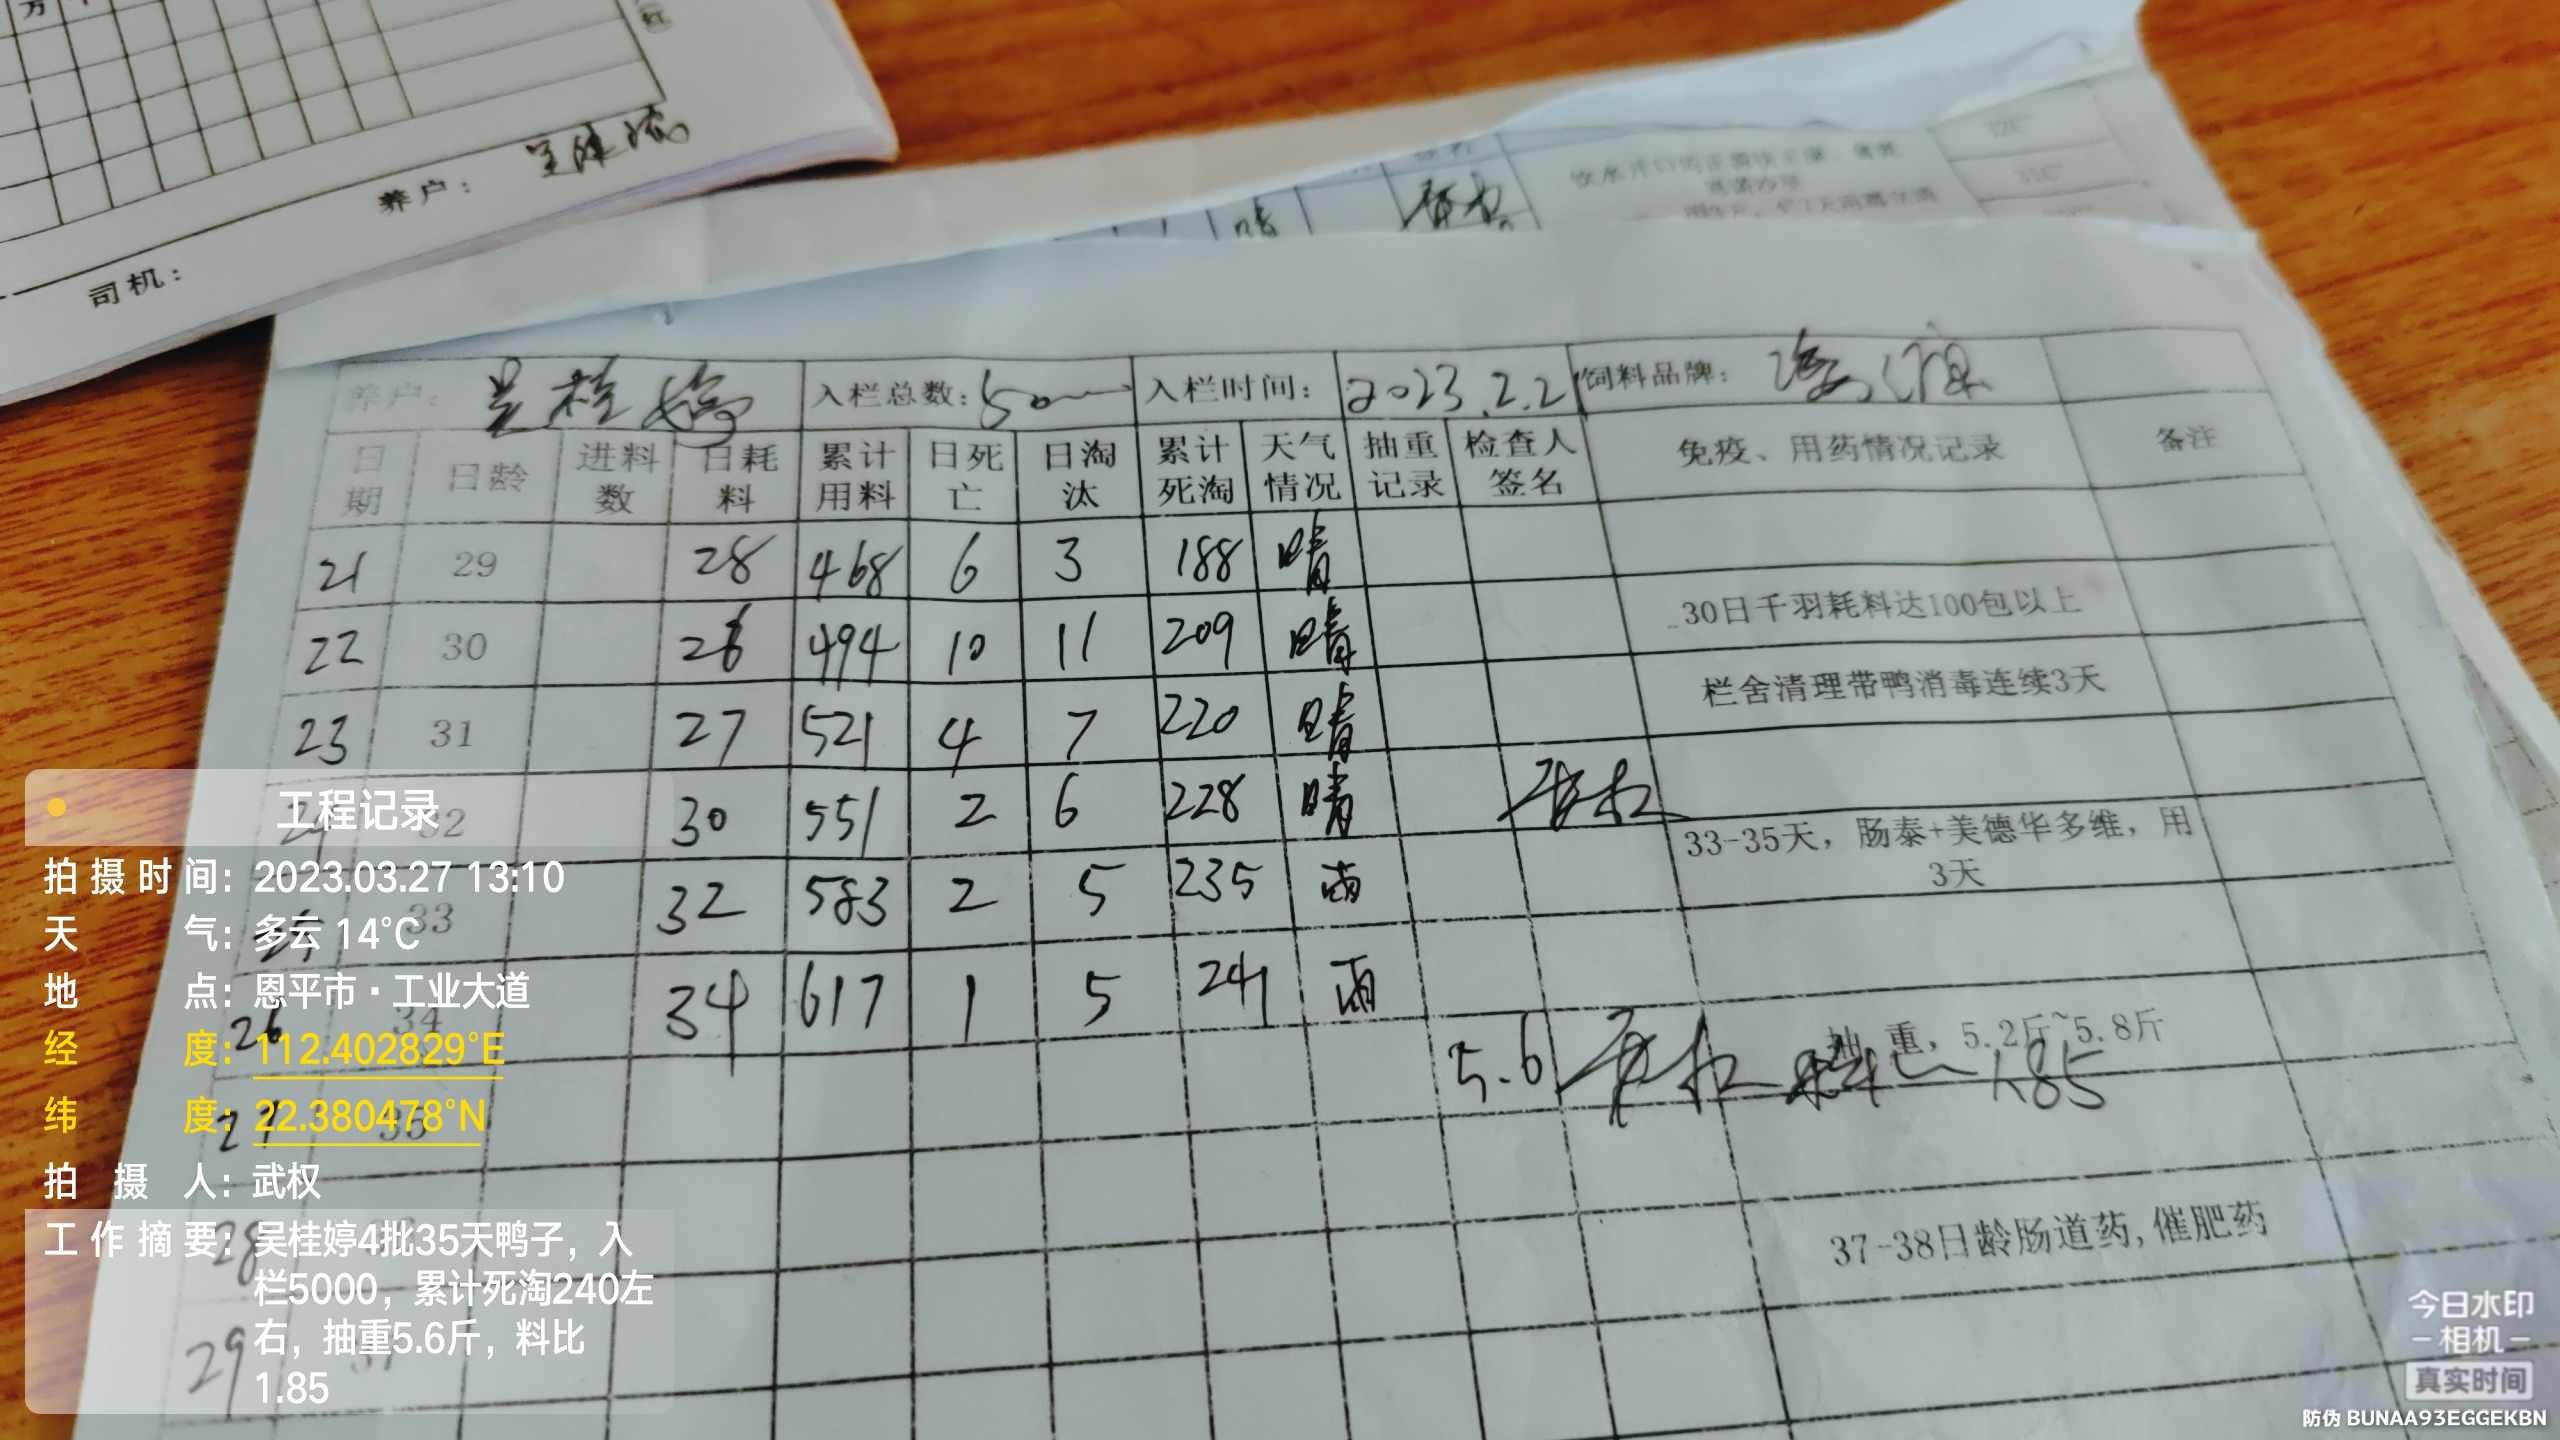 万
养户：
司机：
养户： 吴桂婷 入栏总数：5000 入栏时间：2023.2.21 饲料品牌：
日期 日龄 进料数 日耗料 累计用料 日死亡 日淘汰 累计死淘 天气情况 抽重记录 检查人签名 免疫、用药情况记录 备注
21 29 28 468 6 3 188 晴
22 30 26 494 10 11 209 晴 30日千羽耗料达100包以上
23 31 27 521 4 7 220 晴 栏舍清理带鸭消毒连续3天
24 32 30 551 2 6 228 晴 武权
25 33 32 583 2 5 235 雨 33-35天，肠泰+美德华多维，用3天
26 34 34 617 1 5 241 雨
27 35 5.6 武权 抽重，5.2斤~5.8斤
料比 1.85
28
37-38日龄肠道药,催肥药
29 37
工程记录
拍摄时间：2023.03.27 13:10
天气：多云 14°C
地点：恩平市·工业大道
经度：112.402829°E
纬度：22.380478°N
拍摄人：武权
工作摘要：吴桂婷4批35天鸭子，入
栏5000，累计死淘240左
右，抽重5.6斤，料比
1.85
今日水印
-相机-
真实时间
防伪 BUNAA93EGGEKBN